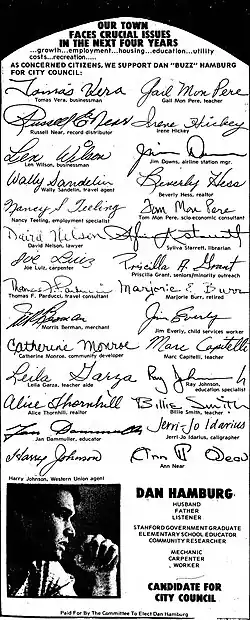 OUR TOWN
FACES CRUCIAL ISSUES
IN THE NEXT FOUR YEARS
...growth...employment...housing...education...utility
costs...recreation.....
AS CONCERNED CITIZENS, WE SUPPORT DAN "BUZZ" HAMBURG
FOR CITY COUNCIL:
Tomas Vera Gail Mon Pere
Tomas Vera, businessman Gail Mon Pere, teacher
Russell E Near Irene Hickey
Russell Near, record distributor Irene Hickey
Len Wilson Jim Downs
Len Wilson, businessman Jim Downs, airline station mgr.
Wally Sandelin Beverly Hess
Wally Sandelin, travel agent Beverly Hess, realtor
Nancy S Teeling Tom Mon Pere
Nancy Teeling, employment specialist Tom Mon Pere, sr. economic consultant
David Nelson
David Nelson, lawyer Syliva Starrett, librarian
Joe Luiz Priscilla A. Grant
Joe Luiz, carpenter Priscilla Grant, seniors/minority outreach
Marjorie E. Burr
Thomas F. Parducci, travel consultant Marjorie Burr, retired
Jim Everly
Morris Berman, merchant Jim Everly, child services worker
Catherine Monroe Marc Capitelli
Catherine Monroe, community developer Marc Capitelli, teacher
Leila Garza Ray Johnson
Leila Garza, teacher aide Ray Johnson, education specialist
Alice Thornhill Billie Smith
Alice Thornhill, realtor Billie Smith, teacher
Jan Dammuller Jerri-Jo Idarius
Jan Dammuller, educator Jerri-Jo Idarius, caligrapher
Harry Johnson Ann
Ann Near
Harry Johnson, Western Union agent
DAN HAMBURG
HUSBAND
FATHER
LISTENER
STANFORD GOVERNMENT GRADUATE
ELEMENTARY SCHOOL EDUCATOR
COMMUNITY RESEARCHER
MECHANIC
CARPENTER
WORKER
CANDIDATE FOR
CITY COUNCIL
Paid For By The Committee To Elect Dan Hamburg